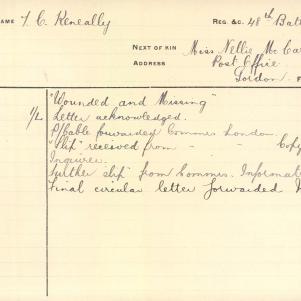 NAME T. C. Keneally REG. &C. 48th Batt
NEXT OF KIN Miss Nellie Mc Ca
ADDRESS Post Office
Gordon
"Wounded and Missing"
Letter acknowledged.
P/Cable forwarded Commrs London.
"Slip" received from - - Copy
Inquirer.
Further slip from Commrs. Informat
Final circular letter forwarded